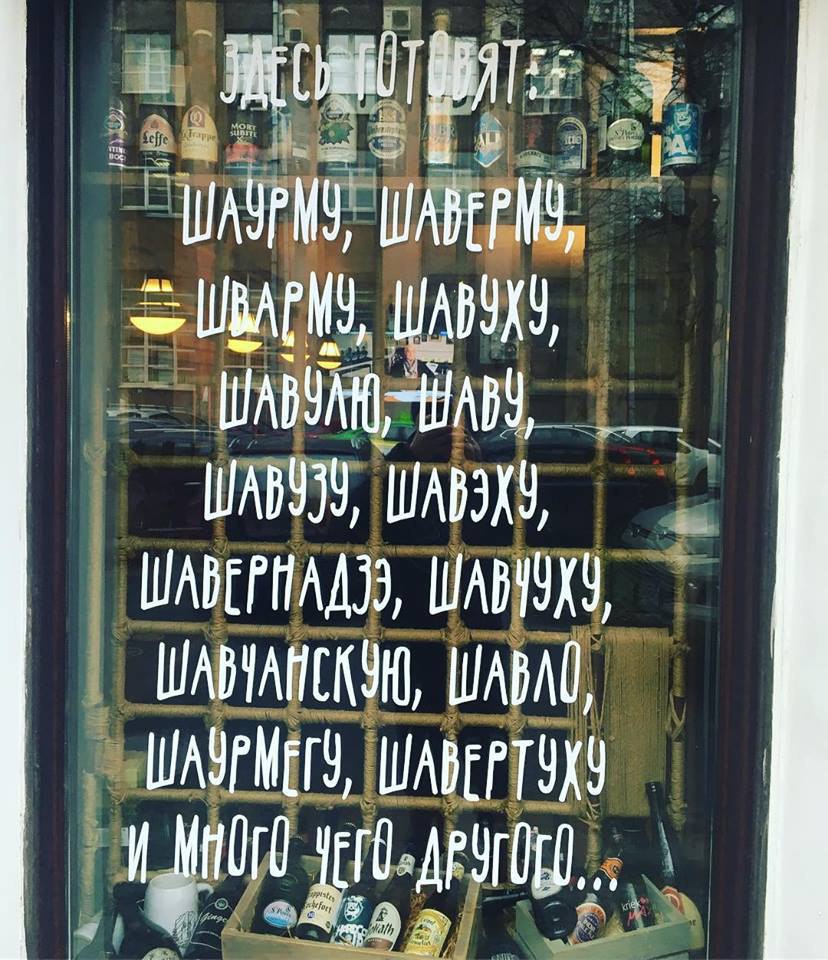 ЗДЕСЬ ГОТОВЯТ:
Leffe
Q
Trappe
MORT
SUBITE
ШАУРМУ, ШАВЕРМУ,
ШВАРМУ, ШАВУХУ,
ШАВУЛЮ, ШАВУ,
ШАВУЗУ, ШАВЭХУ,
ШАВЕРНАДЗЭ, ШАВЧУХУ,
ШАВЧАНСКУЮ, ШАВЛО,
ШАУРМЕГУ, ШАВЕРТУХУ
И МНОГО ЧЕГО ДРУГОГО...
Trappistes
Rochefort
kriek